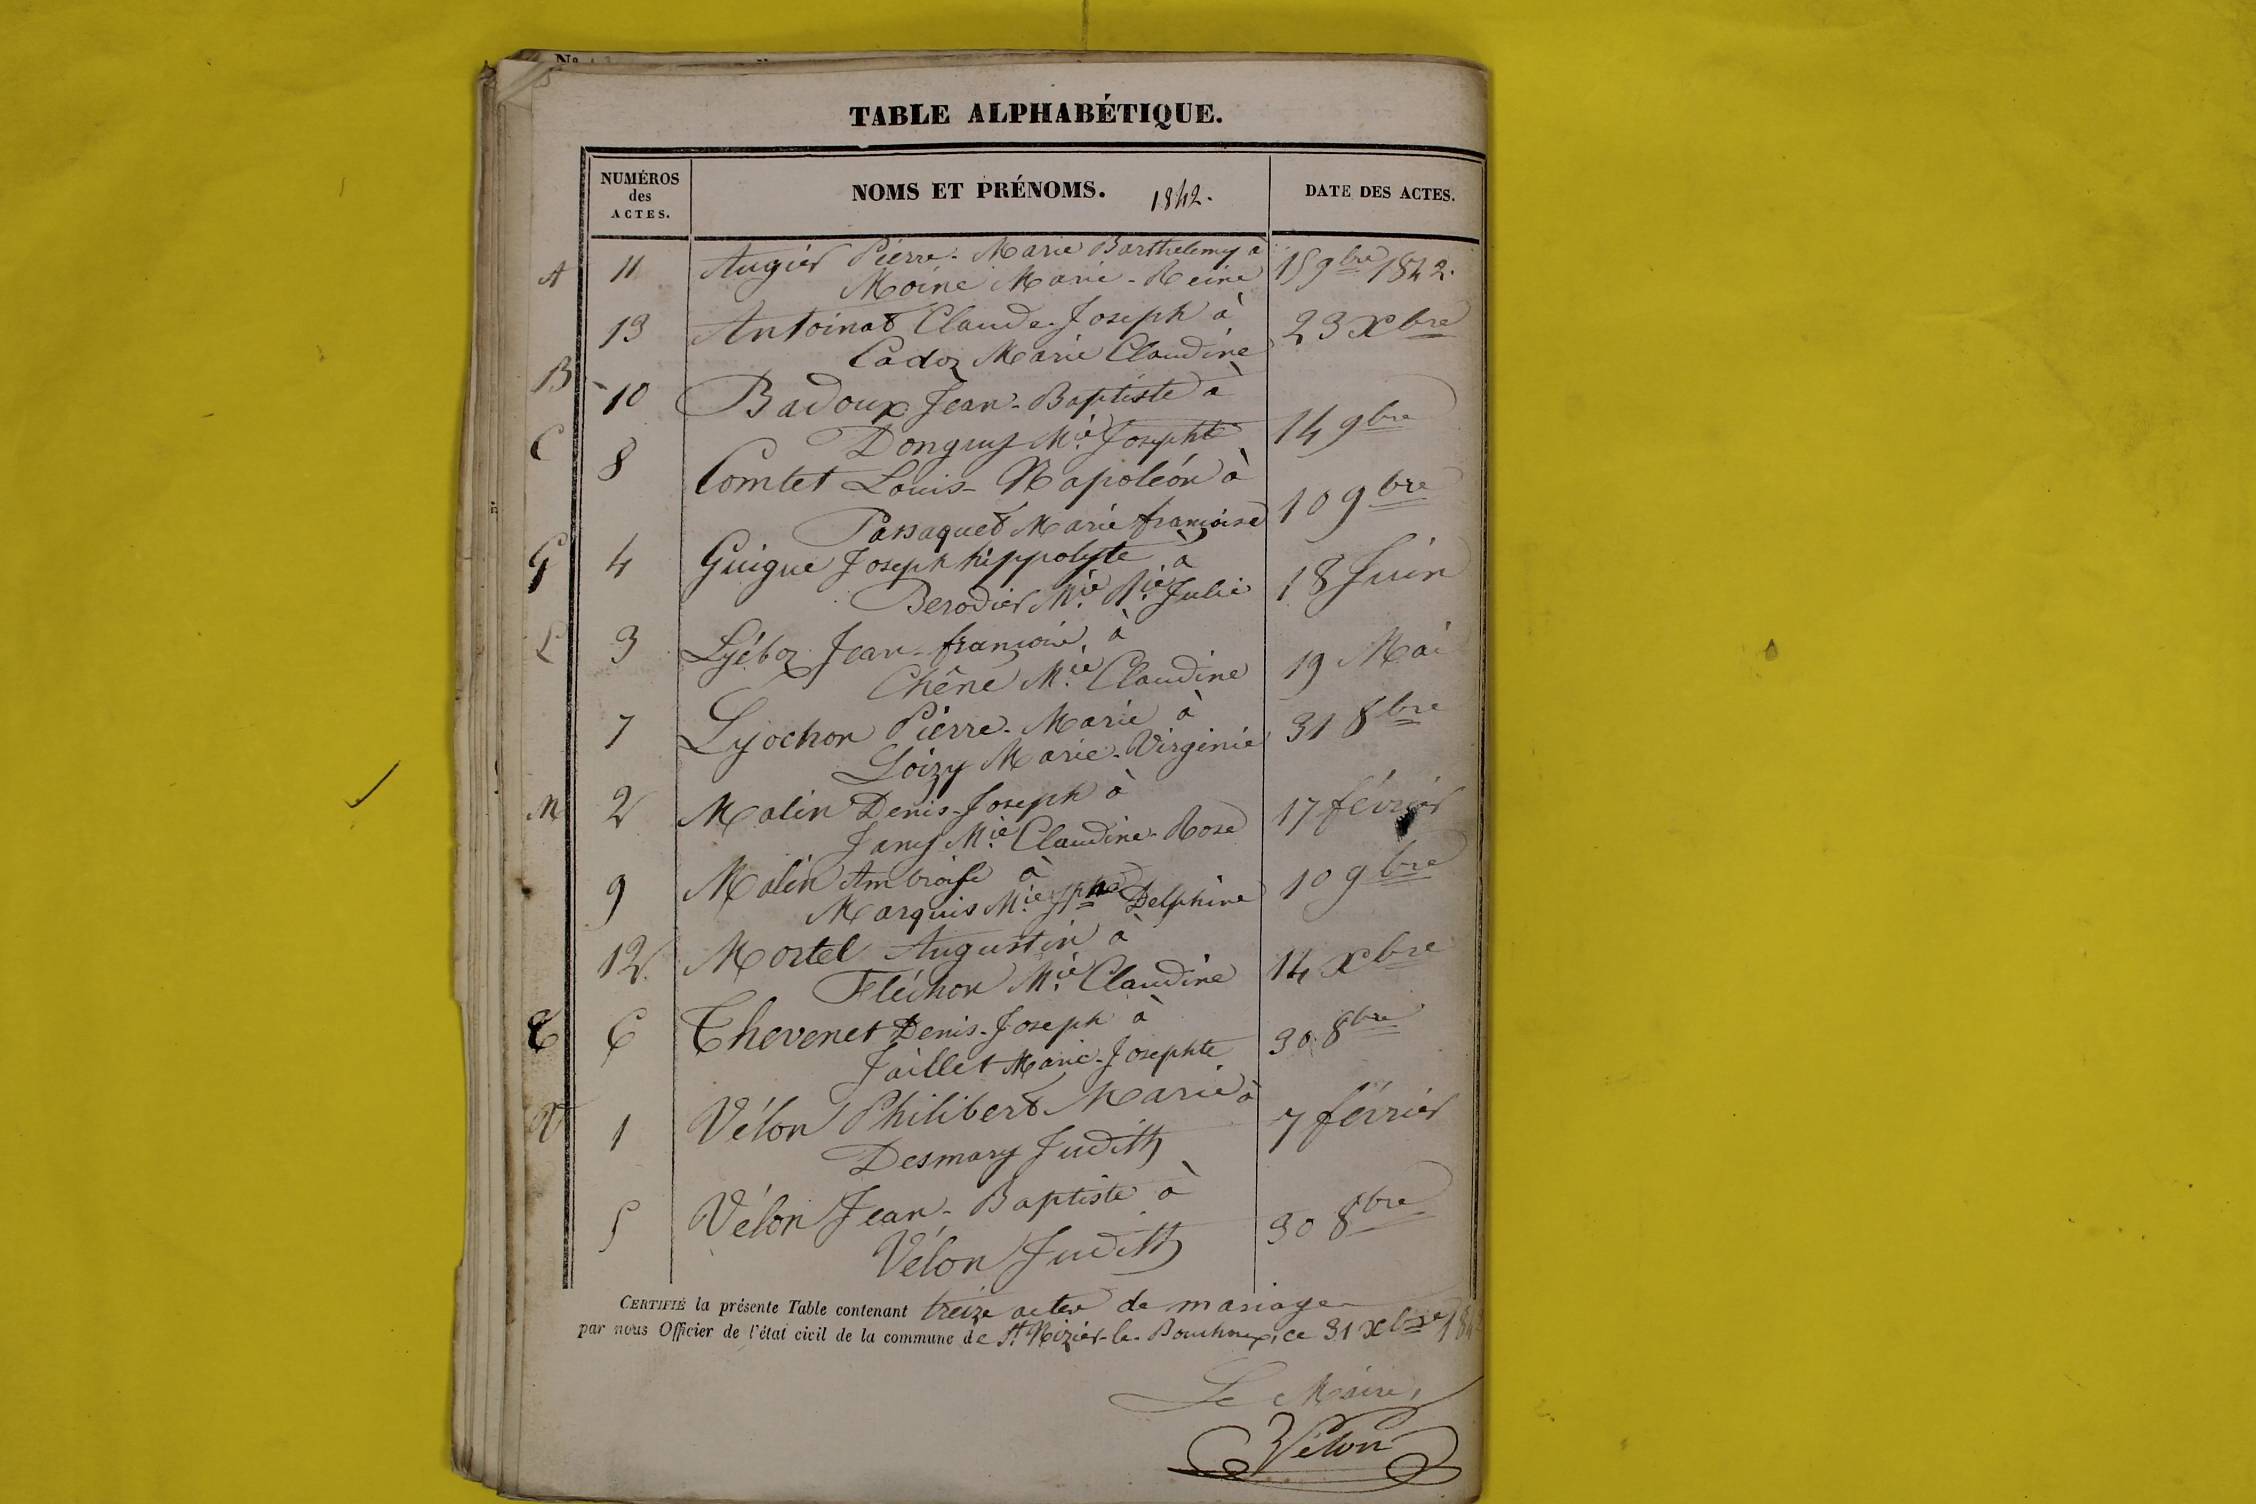 TABLE ALPHABÉTIQUE.
NUMÉROS des ACTES.
NOMS ET PRÉNOMS. 1842.
DATE DES ACTES.
A 11 Augier Pierre-Marie Barthelemy à 15 9bre 1842.
Moine Marie-Reine
13 Antoinat Claude-Joseph à 23 Xbre
Cadoz Marie Claudine
B 10 Badoux Jean-Baptiste à
Donguy Mie Josephte 14 9bre
C 8 Comtet Louis-Napoléon à
Passaquet Marie françoise 10 9bre
G 4 Guigue Joseph hippolyte à
Berodier Mie Julie 18 Juin
L 3 Lyéboz Jean-françois à
Chêne Mie Claudine 19 Mai
7 Lyochon Pierre-Marie à 31 8bre
Loizy Marie-Virginie
M 2 Malin Denis-Joseph à 17 février
Jany Mie Claudine-Rose
9 Malin Ambroise à 10 9bre
Marquis Mie Jphe Delphine
12 Mortel Augustin à
Fléchon Mie Claudine 14 Xbre
T 6 Thevenet Denis-Joseph à
Jaillet Marie-Josephte 30 8bre
V 1 Vélon Philibert Marie à 7 février
Desmary Judith
5 Vélon Jean-Baptiste à 30 8bre
Vélon Judith
CERTIFIÉ la présente Table contenant treize actes de mariage
par nous Officier de l'état civil de la commune de St Nizier-le-Bouchoux, ce 31 Xbre 184
Le Maire,
Vélon